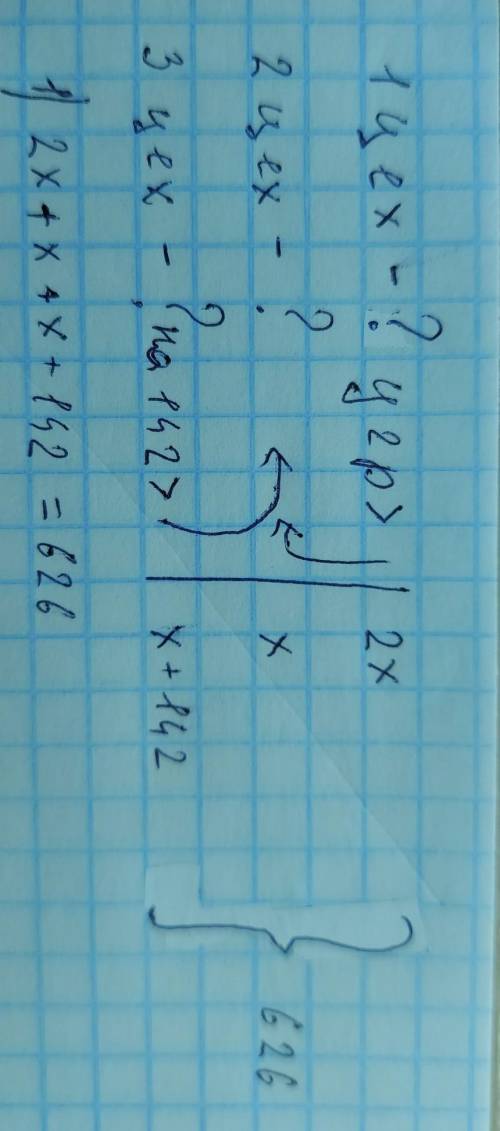 1 цех - ? 2x
2 цех - ? x
3 цех - ? на 142 > x + 142
626
1) 2x + x + x + 142 = 626